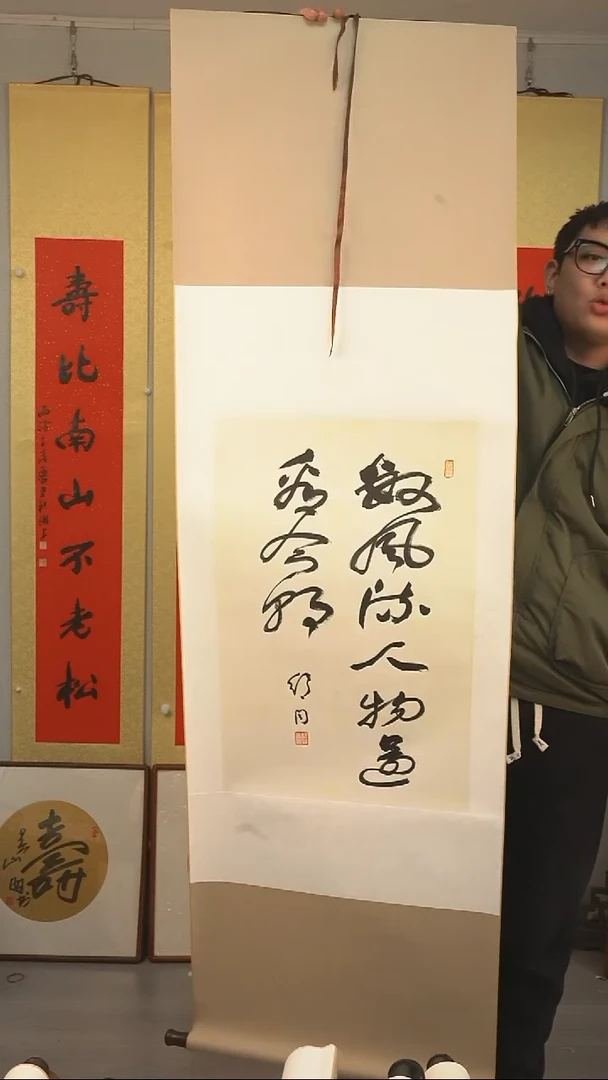 數風流人物還
看今朝
舒同
壽比南山不老松
壽